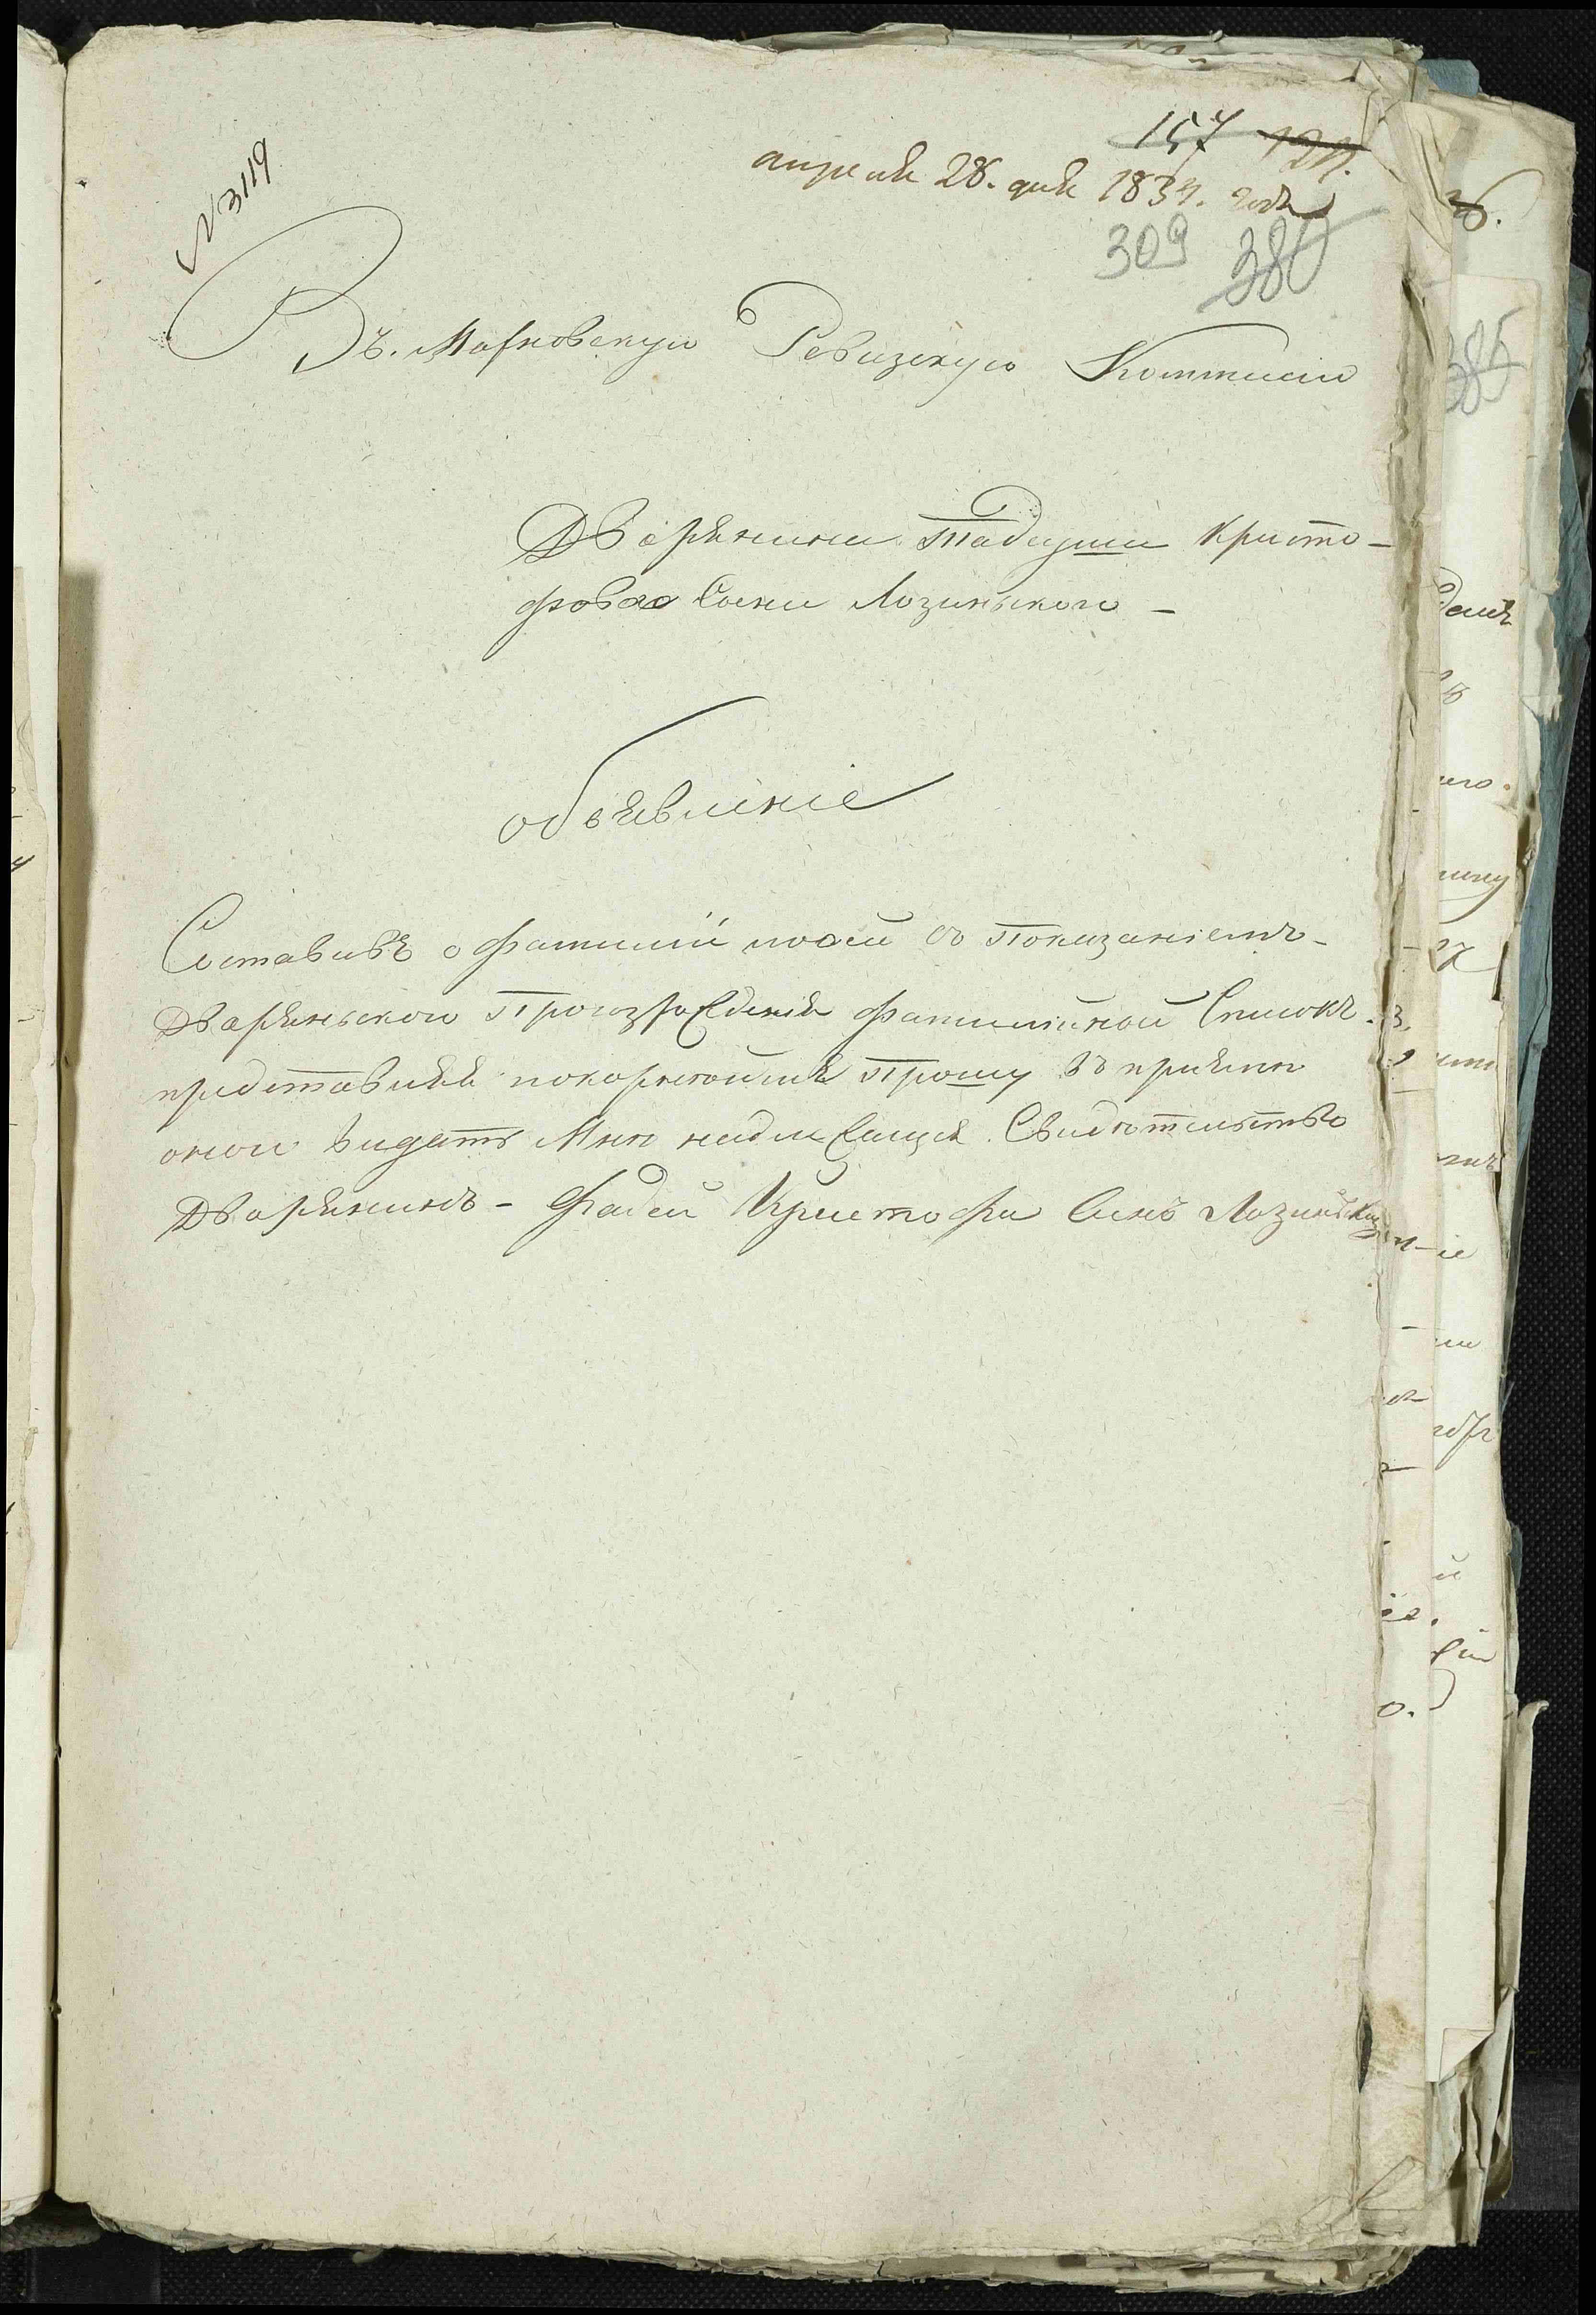 157 121.
апреля 28. дня 1834. года
N 3119
309 380
Въ. Махновскую Ревизскую Коммисію
Дворянина Тадеуша Кристо-
фова Сына Лозинького -
объявленіе
Составивъ о фамилій моей съ показаніемъ -
Дворянского Произрожденія фамилійной Списокъ.
представляя покорнейше Прошу въ пріятіи
оного видать Мню надлежащея Свидотельство
Дворянинъ - Фадей Кристофа Синъ Лозинскій
385